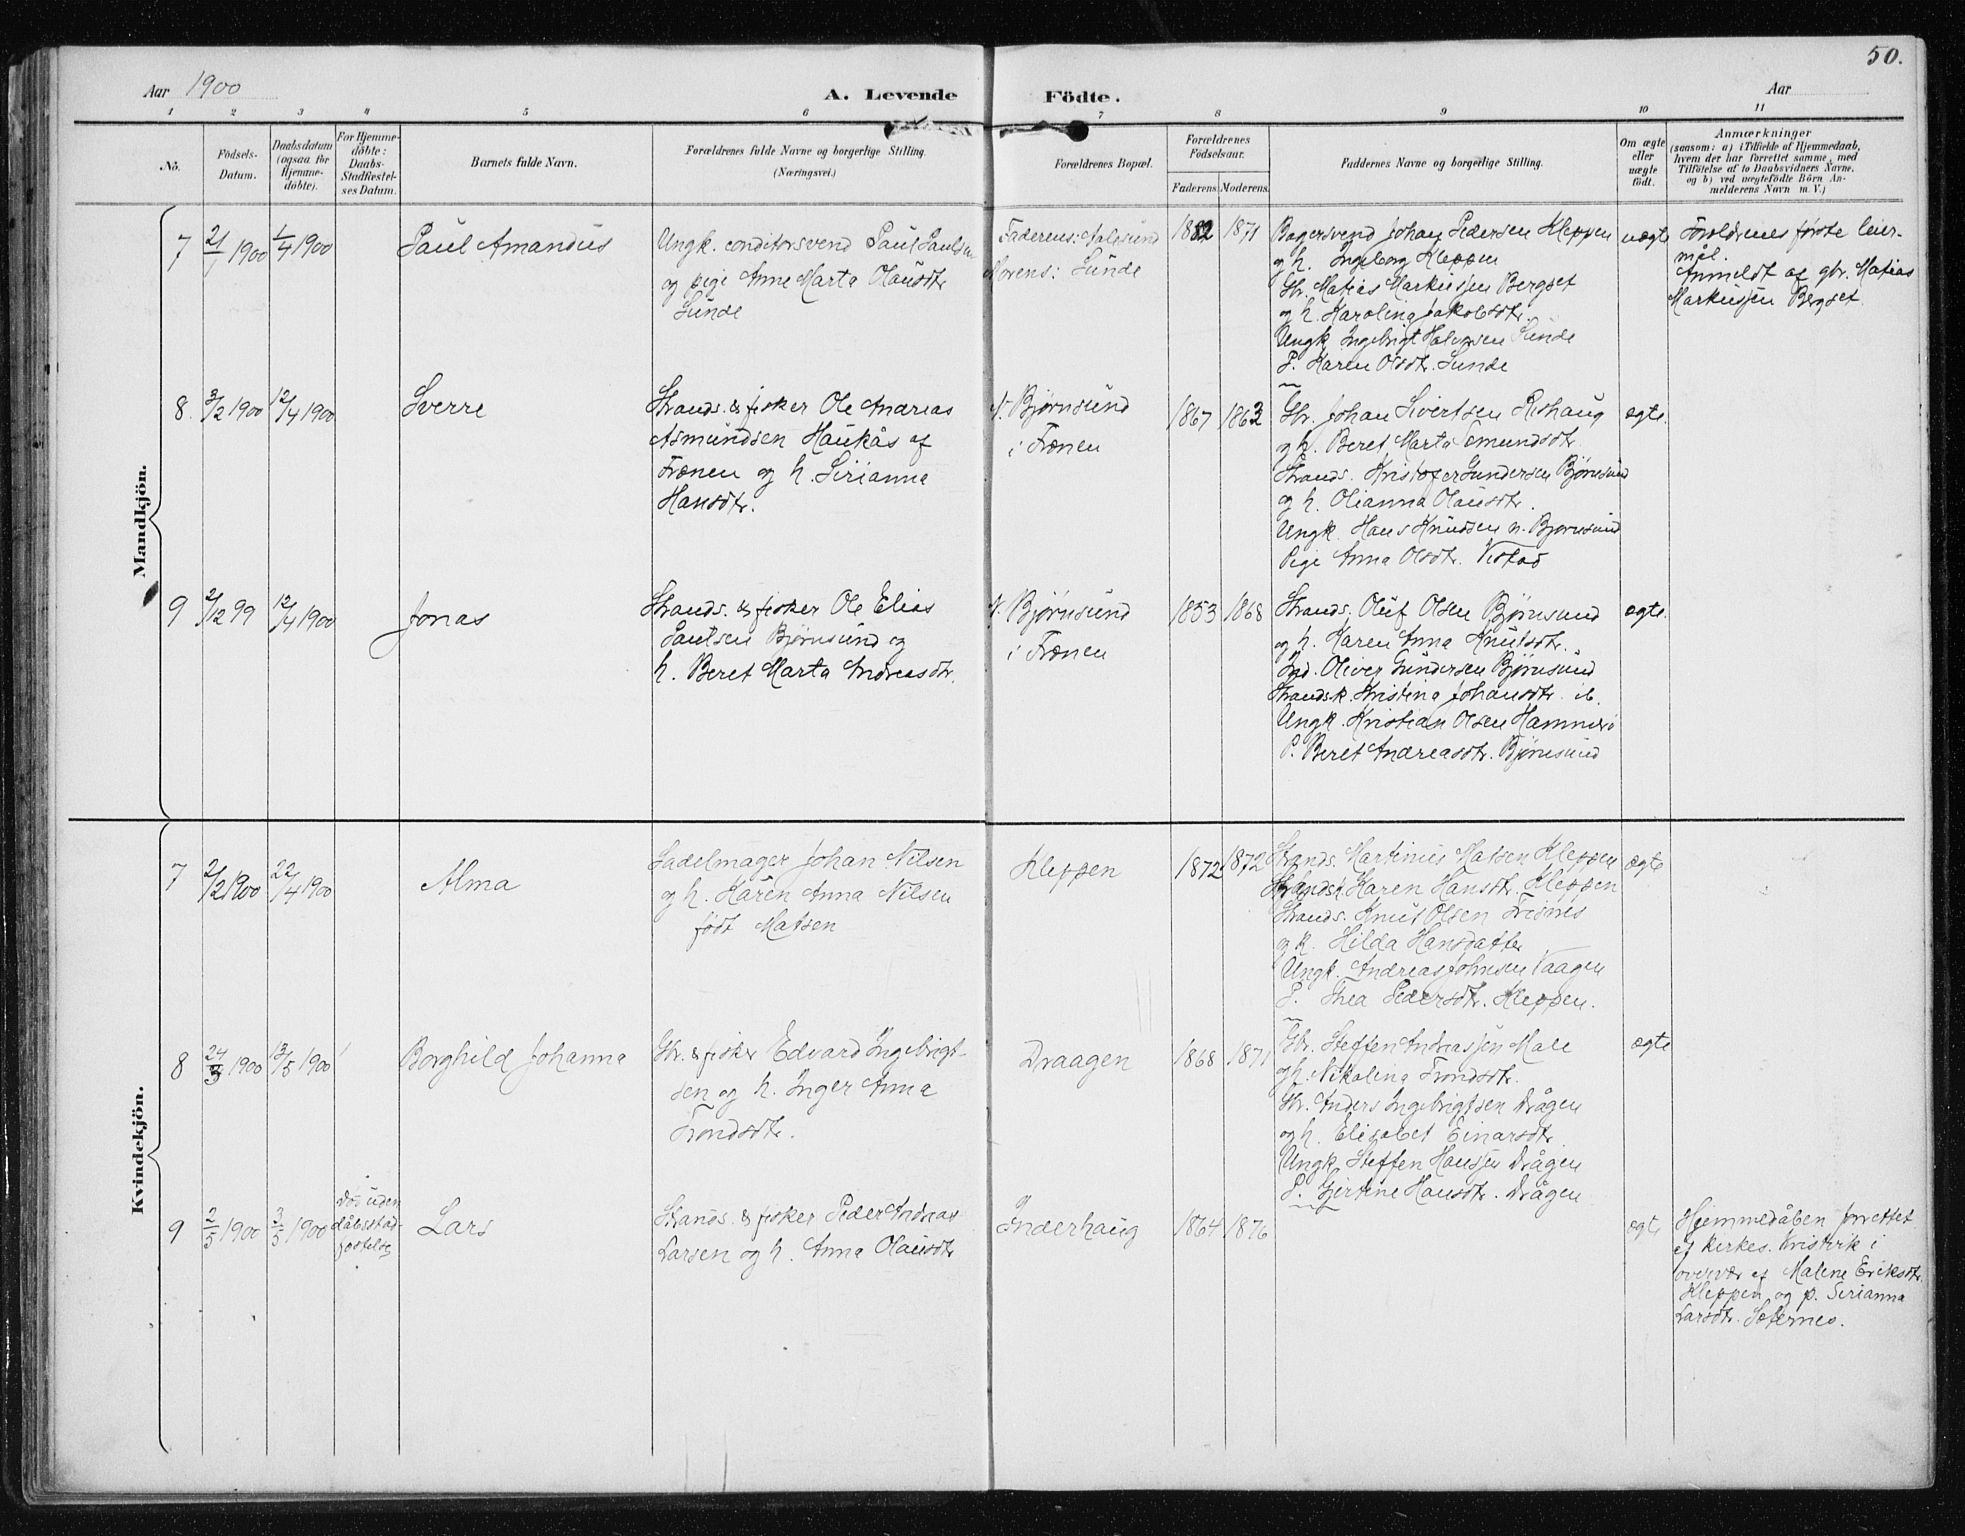 50.
Aar 1900
A. Levende Födte.
Aar
1 2 3 4 5 6 7 8 9 10 11
No.
Födsels-Datum.
Daabsdatum (ogsaa for Hjemme-döbte).
For Hjemme-döbte: Daabs-Stadfæstel-ses Datum.
Barnets fulde Navn.
Forældrenes fulde Navne og borgerlige Stilling.
(Næringsvei.)
Forældrenes Bopæl.
Forældrenes Födselsaar.
Faderens. Moderens.
Faddernes Navne og borgerlige Stilling.
Om ægte eller uægte födt.
Anmærkninger
(saasom: a) i Tilfælde af Hjemmedaab,
hvem der har forrettet samme, med
Tilföielse af to Daabsvidners Navne,
og b) ved uægtefödte Börn An-
melderens Navn m. V.)
Mandkjön.
7 21/1 1900 1/4 1900 Paul Amandus
Ungk. conditorsvend Paul Paulsen
og pige Anne Marta Olausdtr
Sunde
Faderens: Aalesund
Morens: Sunde
1882 1871
Bagersvend Johan Pedersen Kleppen
og h. Ingeborg Kleppen
Gbr. Matias Markussen Bergset
og h. Karolina Jakobsdtr.
Ungk. Ingebrigt Halvorsen Sunde
P. Karen Olsdtr. Sunde
uægte
Forældrenes første leier-
mål.
Anmeldt af gbr. Matias
Markussen Bergset.
8. 3/2 1900 12/4 1900 Sverre
Strands. & fisker Ole Andreas
Asmundsen Haukås af
Frænen og h. Serianna
Hansdtr.
N. Bjørnsund
i Frænen
1867 1863
Gbr. Johan Sivertsen Rishaug
og h. Beret Marta Emundsdtr.
Strands. Kristofer Gundersen Bjørnsund
og h. Olianna Olausdtr.
Ungk. Hans Knudsen n. Bjørnsund
Pige Anna Olsdtr. Vistad
ægte.
9 2/12 99 12/4 1900 Jonas
Strands. & fisker Ole Elias
Paulsen Bjørnsund og
h. Beret Marta Andreasdtr.
N. Bjørnsund
i Frænen
1853 1868
Strands. Oluf Olsen Bjørnsund
og h. Karen Anna Knutsdtr.
Oliver Gundersen Bjørnsund
Strandsk. Kristina Johansdtr. ib.
Ungk. Kristian Olsen Hammerø
P. Beret Andreasdtr. Bjørnsund
ægte.
Kvindekjön.
7 2/2 1900 22/4 1900 Alma
Sadelmager Johan Nilsen
og h. Karen Anna Nilsen
født Matsen
Kleppen
1872 1872
Strands. Martinus Matsen Kleppen
Karen Hansdtr. Kleppen
Strands. Knut Olsen
og k. Hilda Hansdatter
Ungk. Andreas Johnsen Vaagen
P. Thea Pedersdtr. Kleppen.
ægte
8 24/3 1900 13/5 1900 Borghild Johanna
Gbr. & fisker Edvard Ingebrigt-
sen og h. Inger Anna
Trondsdtr.
Draagen
1868 1871
Gbr. Steffen Andreassen Male
og h. Nikolina Trondsdtr.
Gbr. Anders Ingebrigtsen Drågen
og h. Elisabet Einarsdtr.
Ungk. Steffen Hansen Drågen
P. Gjertine Hansdtr. Drågen
ægte
9 2/5 1900 3/5 1900
Død uden
dåbsstad-
fæstelse
Lars
Strands. & fisker Peder Andreas
Larsen og h. Anna Olausdtr
Inderhaug
1864 1876
ægte
Hjemmedåben forrettet
af kirkes. Kristvik i
overvær af Malene Eriksdtr.
Kleppen og p. Serianna
Larsdtr. Sæternes.